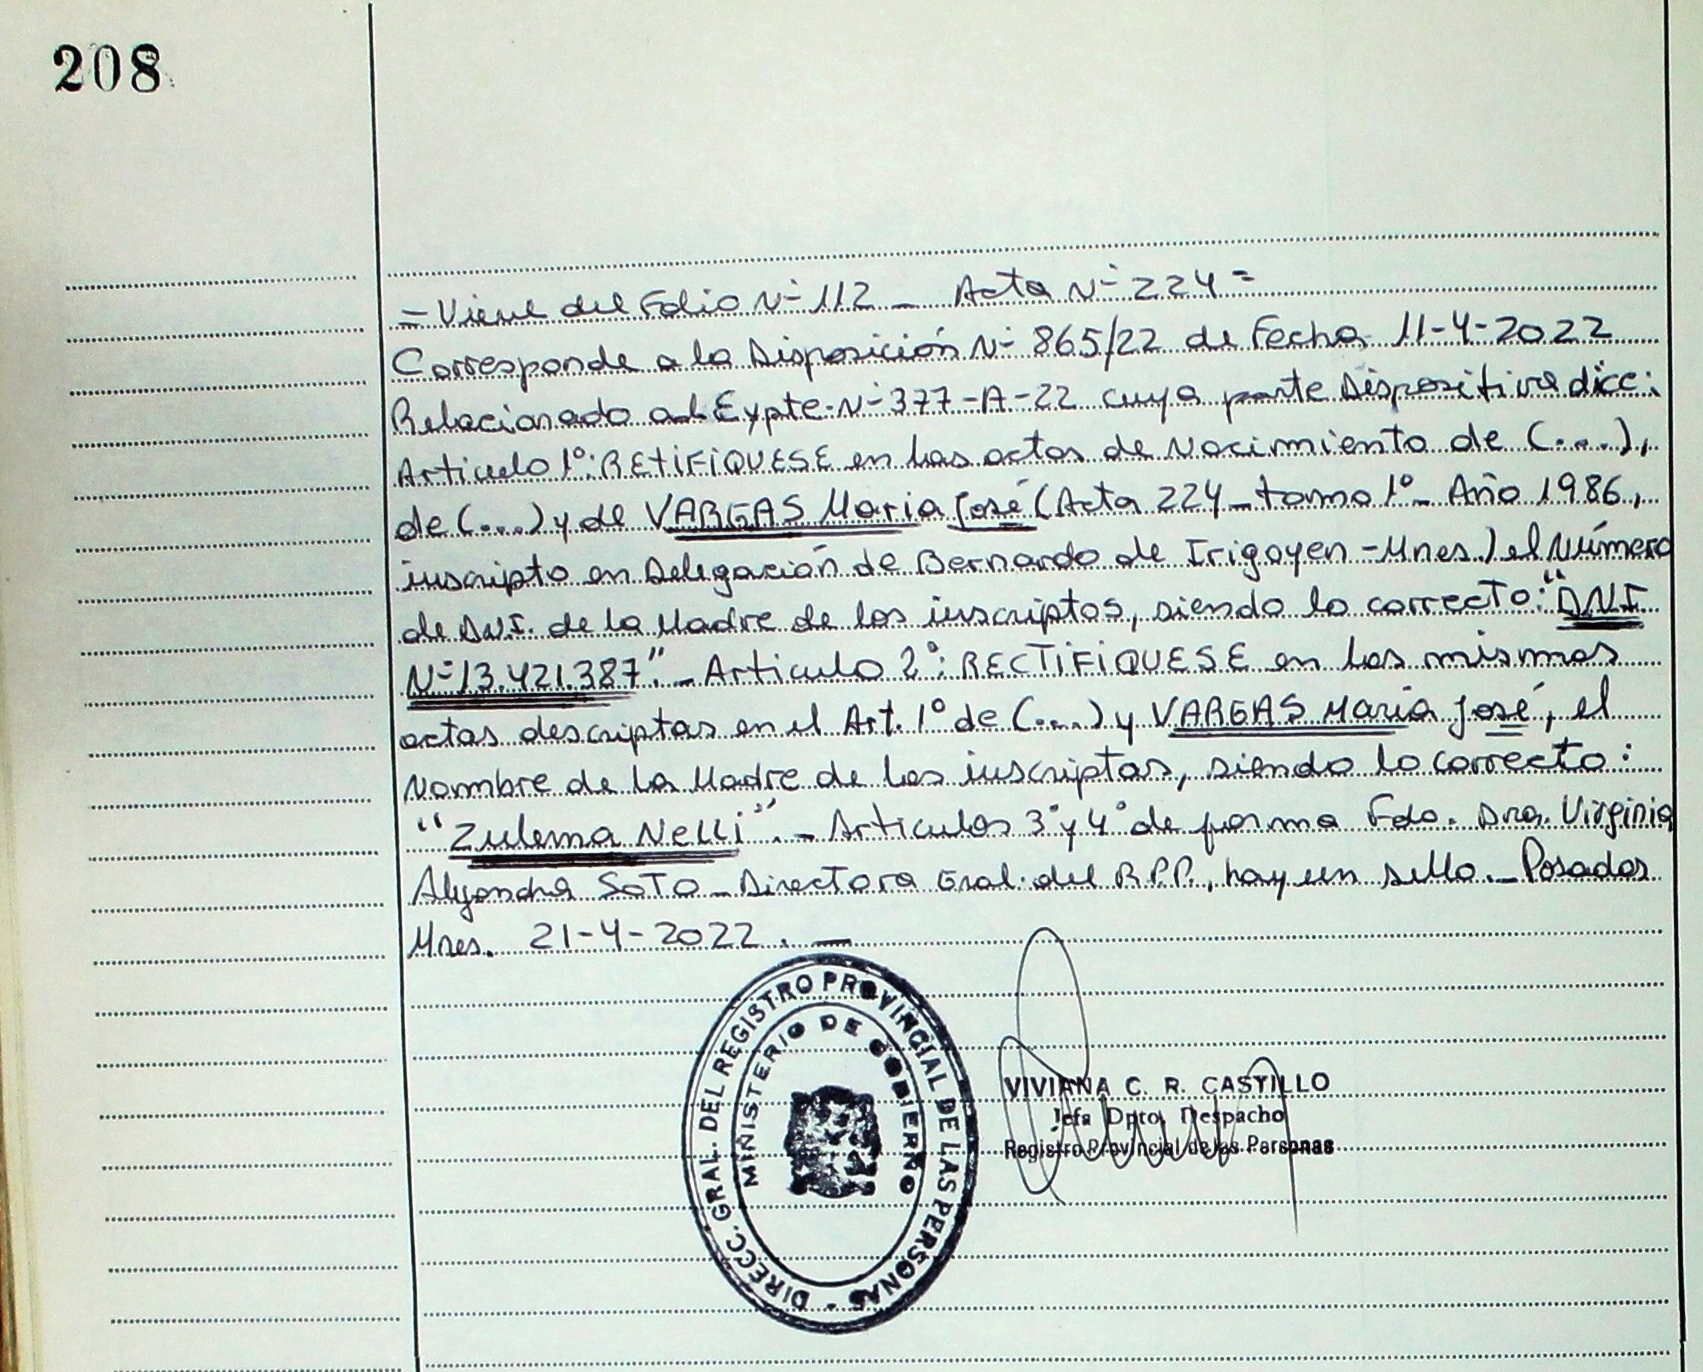 208
= Viene del Folio Nº 112 _ Acta Nº 224 =
Corresponde a la Disposición Nº 865/22 de Fecha 11-4-2022
Relacionado al Expte. Nº 377-A-22 cuya parte Dispositiva dice:
Articulo 1º: RETIFIQUESE en las actas de Nacimiento de (...),
de (...) y de VARGAS Maria José (Acta 224 _ tomo 1º _ Año 1986,
inscripto en Delegación de Bernardo de Irigoyen - Mnes.) el Número
de D.N.I. de la Madre de los inscriptos, siendo lo correcto: "D.N.I.
Nº 13.421.387". _ Articulo 2º: RECTIFIQUESE en las mismas
actas descriptas en el Art. 1º de (...) y VARGAS Maria José, el
Nombre de la Madre de las inscriptas, siendo lo correcto:
"Zulema Nelli". _ Articulos 3º y 4º de forma Fdo. Dra. Virginia
Alejandra SOTO _ Directora Gral. del R.P.P., hay un sello. _ Posadas
Mnes. 21-4-2022. —
DIRECC. GRAL. DEL REGISTRO PROVINCIAL DE LAS PERSONAS -
MINISTERIO DE GOBIERNO
VIVIANA C. R. CASTILLO
Jefa Dpto. Despacho
Registro Provincial de las Personas